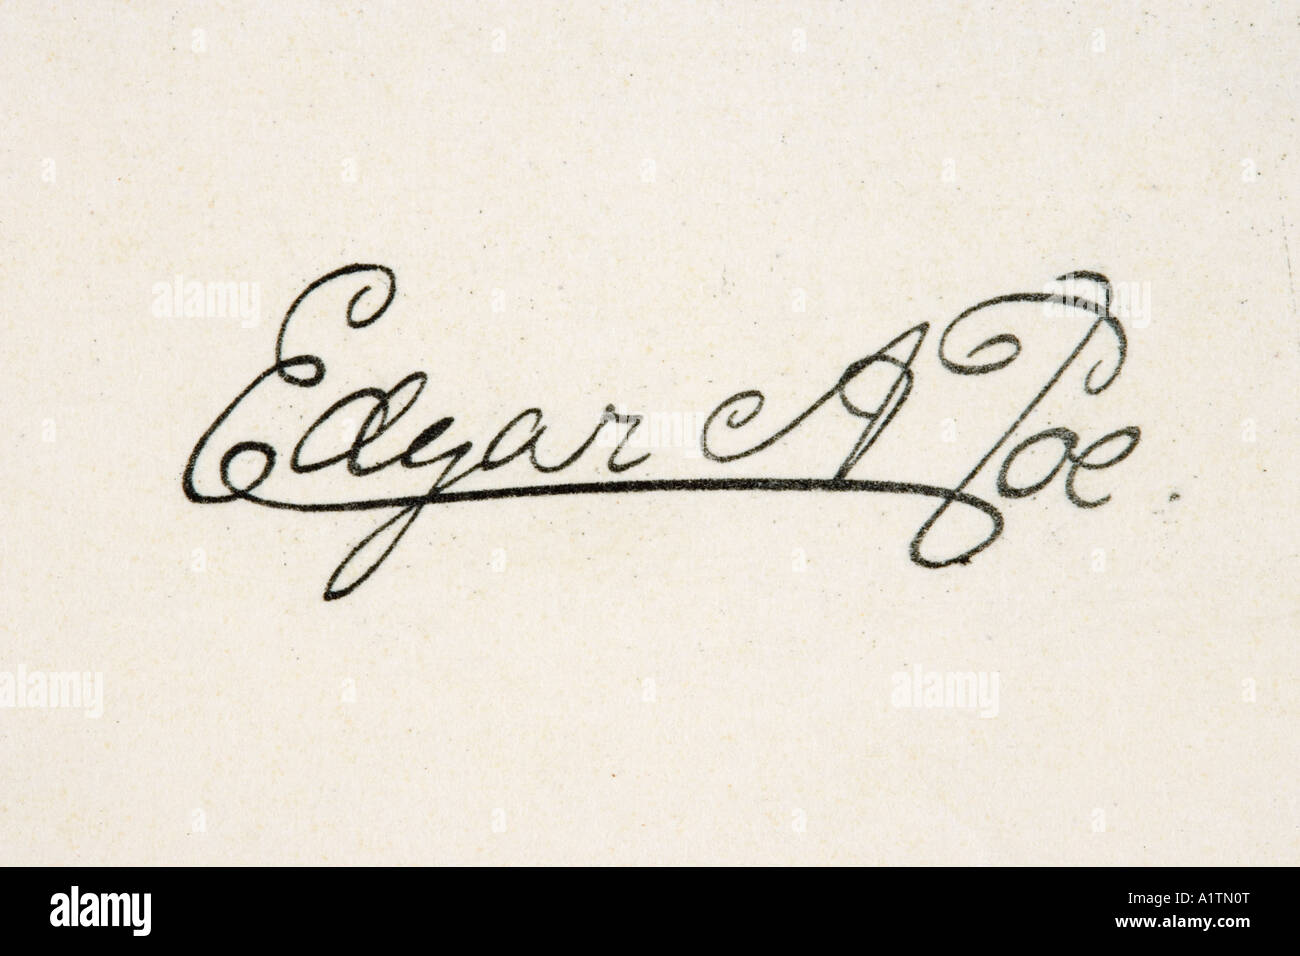 Edgar A Poe.
alamy
alamy
alamy
alamy
alamy
alamy
Image ID: A1TN0T
www.alamy.com